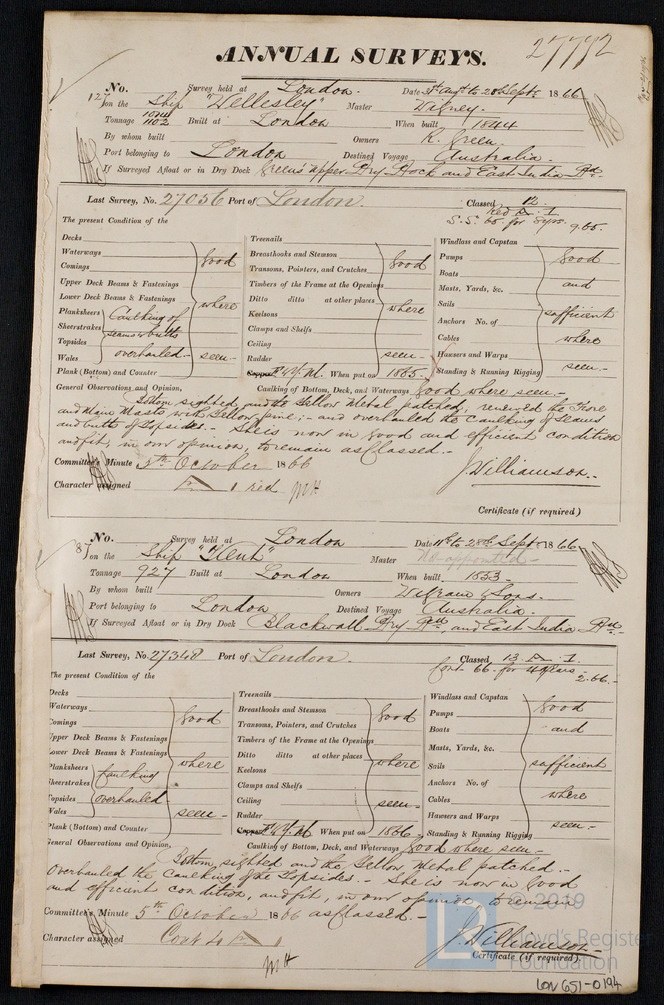 27772
ANNUAL SURVEYS.
No. Survey held at London. Date 31st Augt to 20 Septr 1866
on the Ship "Wellesley" Master
Tonnage 1014 1102 Built at London When built 1844
By whom built Owners R. Green
Port belonging to London Destined Voyage Australia.
If Surveyed Afloat or in Dry Dock Green's upper Dry Dock and East India
Last Survey, No. 27056 Port of London. Classed 12
Red A. 1
The present Condition of the S.S. 65. for 8 years. 9.65.
Decks
Waterways
Comings
Upper Deck Beams & Fastenings
Lower Deck Beams & Fastenings
Planksheers
Sheerstrakes
Topsides
Wales
Plank (Bottom) and Counter
Caulking of
seams & butts
overhauled
good
where
seen
Treenails
Breasthooks and Stemson
Transoms, Pointers, and Crutches
Timbers of the Frame at the Openings
Ditto ditto at other places
Keelsons
Clamps and Shelfs
Ceiling
Rudder
Copper Y.M. When put on 1865.
good
where
seen
Windlass and Capstan
Pumps
Boats
Masts, Yards, &c.
Sails
Anchors No. of
Cables
Hawsers and Warps
Standing & Running Rigging
good
and
sufficient
where
seen
General Observations and Opinion, Caulking of Bottom, Deck, and Waterways good where seen.
Bottom sighted and the Yellow Metal patched, renewed the Fore
and Main Masts with Yellow pine, and overhauled the caulking of Seams
and butts of Topsides. She is now in good and efficient condition
and fit, in our opinion, to remain as classed.
Committee's Minute 5th October 1866
J. Williamson
Character assigned A 1 red
Certificate (if required)
No. Survey held at London Date 11th to 28th Septr 1866
on the Ship "Kent" Master No appointed
Tonnage 927 Built at London When built 1853
By whom built Owners Wigram & Sons.
Port belonging to London Destined Voyage Australia.
If Surveyed Afloat or in Dry Dock Blackwall Dry and East India
Last Survey, No. 27348 Port of London. Classed 13 A 1
Cont 66. for 4 years
2.66.
The present Condition of the
Decks
Waterways
Comings
Upper Deck Beams & Fastenings
Lower Deck Beams & Fastenings
Planksheers
Sheerstrakes
Topsides
Wales
Plank (Bottom) and Counter
Caulking
overhauled
good
where
seen
Treenails
Breasthooks and Stemson
Transoms, Pointers, and Crutches
Timbers of the Frame at the Openings
Ditto ditto at other places
Keelsons
Clamps and Shelfs
Ceiling
Rudder
Copper Y.M When put on 1866
good
where
seen
Windlass and Capstan
Pumps
Boats
Masts, Yards, &c.
Sails
Anchors No. of
Cables
Hawsers and Warps
Standing & Running Rigging
good
and
sufficient
where
seen
General Observations and Opinion, Caulking of Bottom, Deck, and Waterways good where seen
Bottom sighted and the Yellow Metal patched.
Overhauled the Caulking of the Topsides. She is now in good
and efficient condition, and fit, in our opinion, to remain
Committee's Minute 5th October 1866 as classed.
J. Williamson
Character assigned Cont 4 A 1
Certificate (if required).
© 2019
Lloyd's Register
Foundation
LON 651-0194